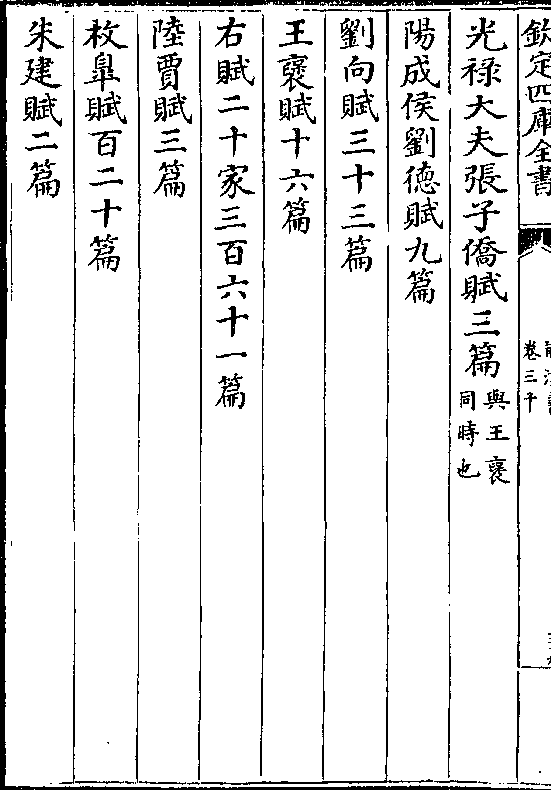 欽定四庫全書
卷三十
光祿大夫張子僑賦三篇與王襃同時也
陽成侯劉德賦九篇
劉向賦三十三篇
王襃賦十六篇
右賦二十家三百六十一篇
陸賈賦三篇
枚臯賦百二十篇
朱建賦二篇